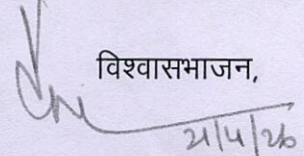 विश्वासभाजन,
21/4/26